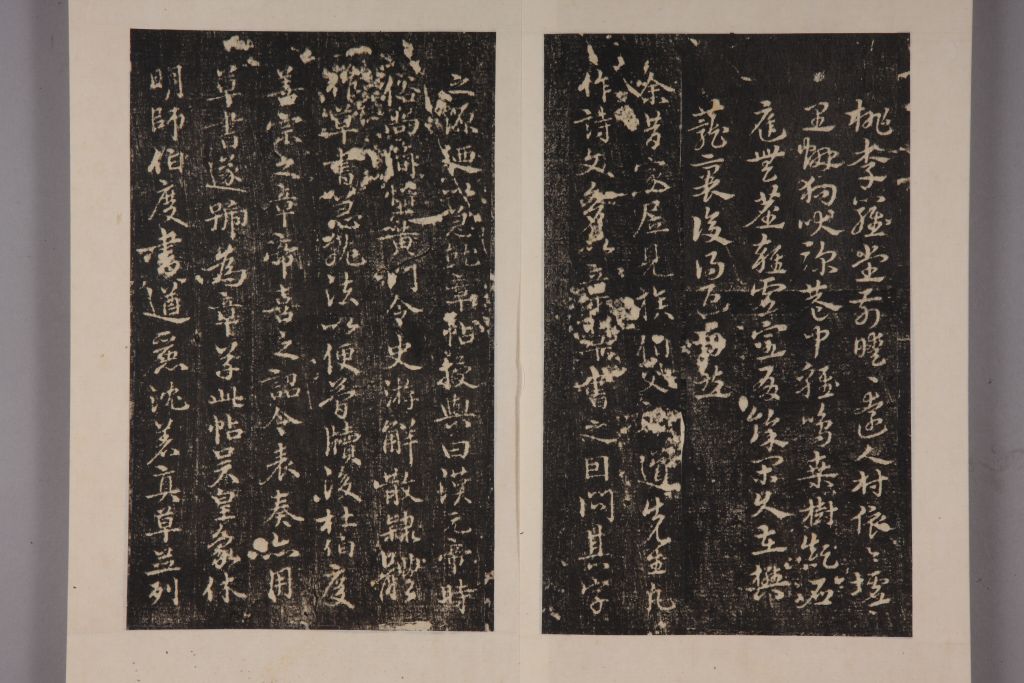 桃李羅堂前曖〻遠人村依〻墟
里煙狗吠深巷中雞鳴桑樹顛
庭無塵雜虛室有餘閑久在樊
籠裏復得返自然
余昔家居見族
先生凡
作詩文多以章草書之因問其字
之源
章帖授與曰漢元帝時
俗尚簡黃門令史游解散隸體
作草書急就法以便簡牘後杜伯度
善宗之章帝喜之詔令表奏亦用
草書遂號為章草此帖吳皇象休
明師伯度書遒逸沈著真草並列